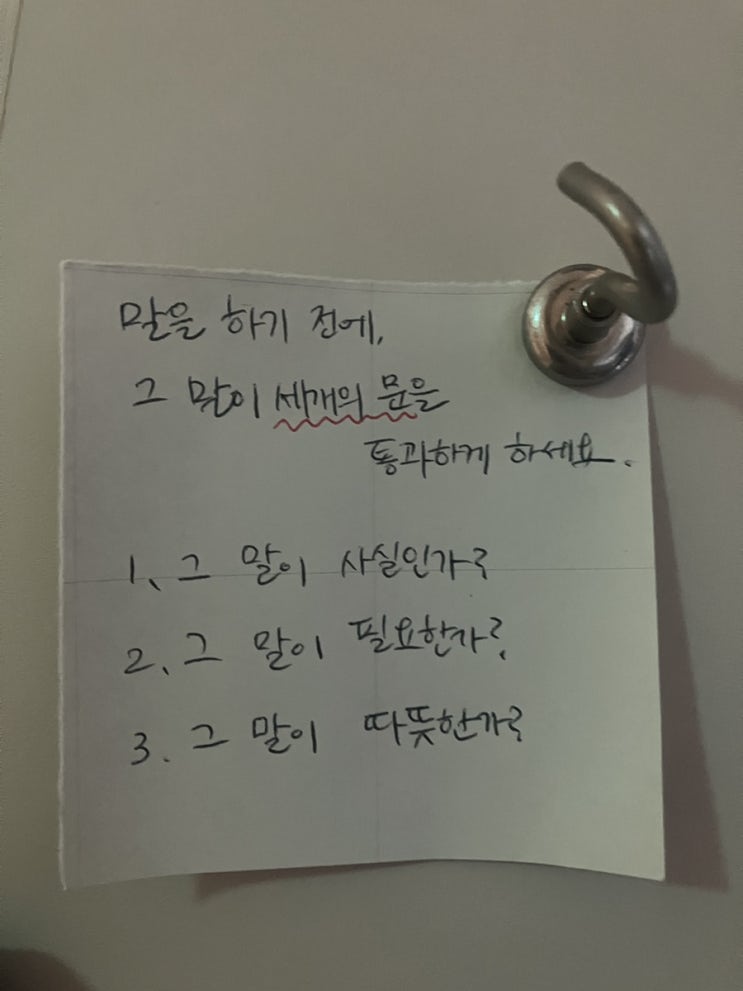 말을 하기 전에,
그 말이 세개의 문을
통과하게 하세요.
1. 그 말이 사실인가?
2. 그 말이 필요한가?
3. 그 말이 따뜻한가?